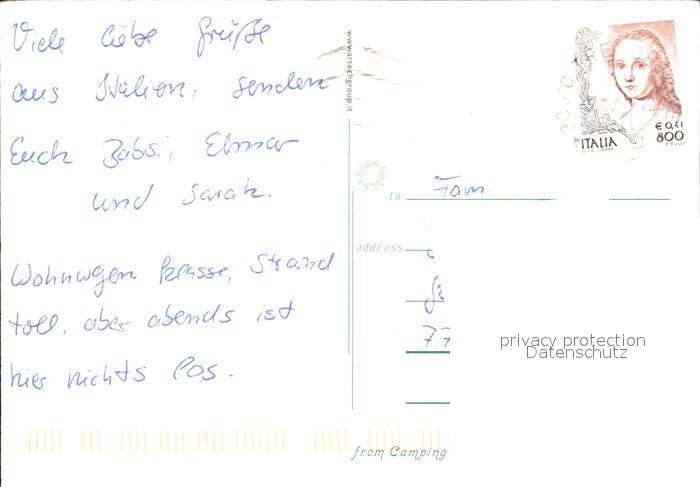 Viele liebe Grüße
aus Italien, senden
Euch Babsi, Elmar
und Sarah.
Wohnwgen klasse, Strand
toll, aber abends ist
hier nichts los.
www.artechgroup.it
€ 0,41
800
ITALIA
to Fam.
address
77
privacy protection
Datenschutz
from Camping